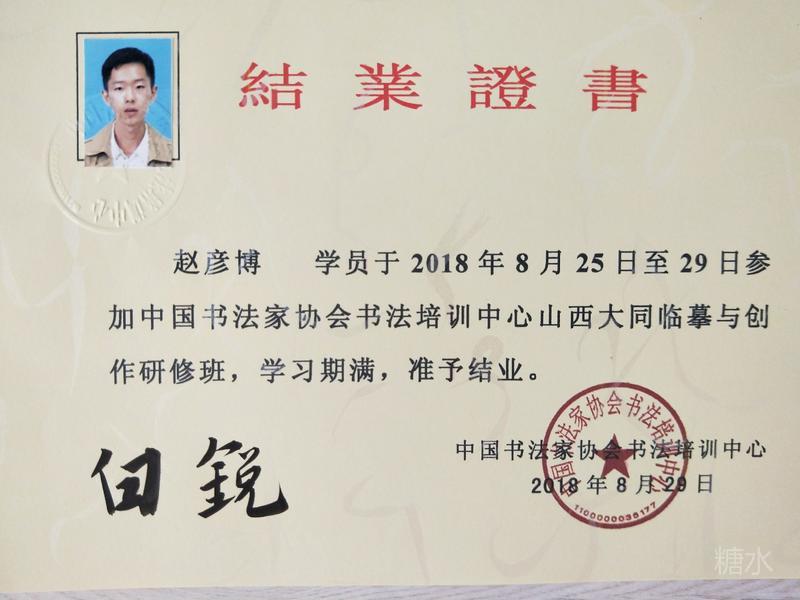 結業證書
赵彦博 学员于2018年8月25日至29日参
加中国书法家协会书法培训中心山西大同临摹与创
作研修班，学习期满，准予结业。
中国书法家协会书法培训中心
2018年8月29日
中国书法家协会书法培训中心
1100000036177
糖水